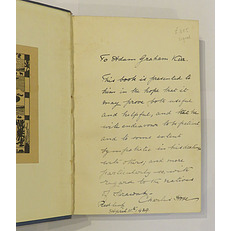 To Adam Graham Kerr
This book is presented to
him in the hope that it
may prove both useful
and helpful, and that he
will endeavour to be patient
and to some extent
sympathetic in his dealings
with others, and more
particularly so, with
regard to the natives
of Sarawak.
Charles Hose